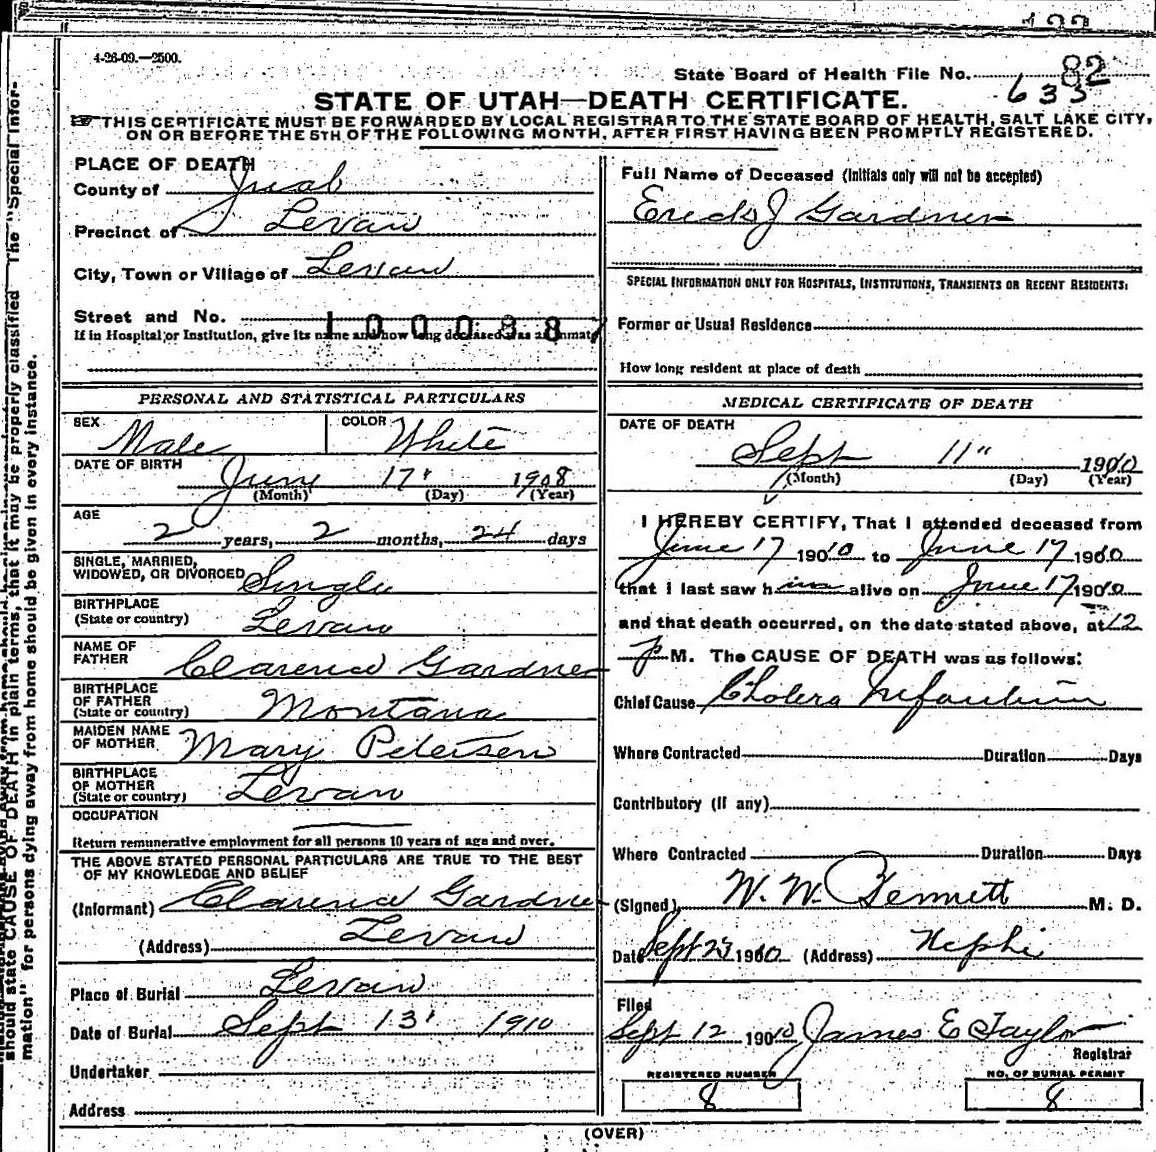 4-26-09.—2500.
State Board of Health File No. 82
635
STATE OF UTAH—DEATH CERTIFICATE.
THIS CERTIFICATE MUST BE FORWARDED BY LOCAL REGISTRAR TO THE STATE BOARD OF HEALTH, SALT LAKE CITY,
ON OR BEFORE THE 5TH OF THE FOLLOWING MONTH, AFTER FIRST HAVING BEEN PROMPTLY REGISTERED.
PLACE OF DEATH
County of Juab
Precinct of Levan
City, Town or Village of Levan
Street and No.
If in Hospital or Institution, give its name and how long deceased was an inmate
100088
PERSONAL AND STATISTICAL PARTICULARS
SEX Male COLOR White
DATE OF BIRTH June 17" 1908
(Month) (Day) (Year)
AGE
2 years, 2 months, 24 days
SINGLE, MARRIED,
WIDOWED, OR DIVORCED Single
BIRTHPLACE
(State or country) Levan
NAME OF
FATHER Clarence Gardner
BIRTHPLACE
OF FATHER
(State or country) Montana
MAIDEN NAME
OF MOTHER Mary Petersen
BIRTHPLACE
OF MOTHER
(State or country) Levan
OCCUPATION
Return remunerative employment for all persons 10 years of age and over.
THE ABOVE STATED PERSONAL PARTICULARS ARE TRUE TO THE BEST
OF MY KNOWLEDGE AND BELIEF
(Informant) Clarence Gardner
(Address) Levan
Place of Burial Levan
Date of Burial Sept 13" 1910
Undertaker
Address
Full Name of Deceased (Initials only will not be accepted)
J Gardner
SPECIAL INFORMATION ONLY FOR HOSPITALS, INSTITUTIONS, TRANSIENTS OR RECENT RESIDENTS:
Former or Usual Residence
How long resident at place of death
MEDICAL CERTIFICATE OF DEATH
DATE OF DEATH
Sept 11" 1910
(Month) (Day) (Year)
I HEREBY CERTIFY, That I attended deceased from
June 17 1910 to June 17 1910
that I last saw him alive on June 17 1910
and that death occurred, on the date stated above, at 12
P M. The CAUSE OF DEATH was as follows:
Chief Cause Cholera Infantum
Where Contracted Duration Days
Contributory (if any)
Where Contracted Duration Days
(Signed) W. W. M. D.
Date Sept 23 1910 (Address) Nephi
Filed
Sept 12 1910 James E Taylor
Registrar
REGISTERED NUMBER NO. OF BURIAL PERMIT
8 8
(OVER)
should state CAUSE OF DEATH in plain terms, that it may be properly classified The "Special Infor-
mation" for persons dying away from home should be given in every instance.